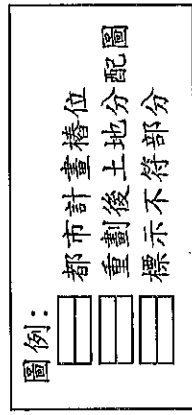 圖例：
都市計畫樁位
重劃後土地分配圖
標示不符部分